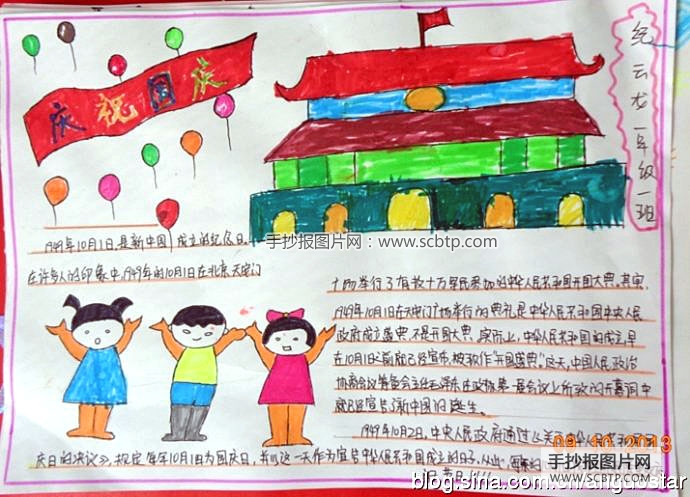 庆祝国庆
纪云龙一年级一班
手抄报图片网：www.scbtp.com
1949年10月1日,是新中国成立的纪念日.
在许多人的印象中,1949年的10月1日在北京天安门
广场举行了有数十万军民参加的中华人民共和国开国大典.其实,
1949年10月1日在天安门广场举行的典礼是中华人民共和国中央人民
政府成立盛典,不是开国大典.实际上,中华人民共和国的成立,早
在10月1日之前就已经宣布,被称作"开国盛典".这天,中国人民政治
协商会议筹备会主任毛泽东在政协第一届会议上所致的开幕词中
就已经宣告了新中国的诞生.
1949年10月2日,中央人民政府通过《关于中华人民共和国国
庆日的决议》,规定每年10月1日为国庆日,并以这一天作为宣告中华人民共和国成立的日子.从此,
09 10 2013
手抄报图片网
www.scbtp.com